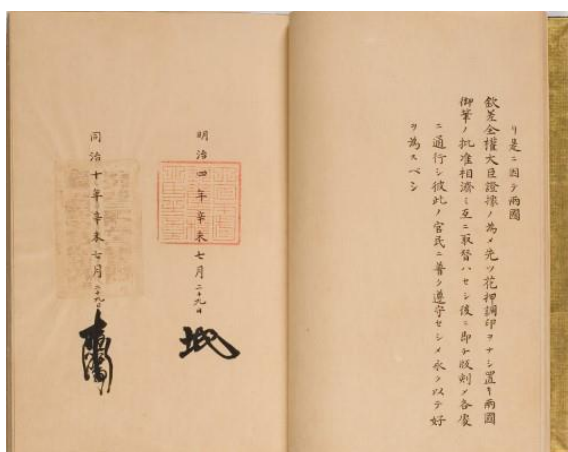 リ是ニ因テ兩國
欽差全權大臣證據ノ為メ先ツ花押調印ヲナシ置キ兩國
御筆ノ批准相濟ミ互ニ取替ハセシ後ニ即チ版刻メ各處
ニ通行シ彼此ノ官民ニ普ク遵守セシメ永ク以テ好
ヲ為スベシ
明治四年辛未七月二十九日
同治十年辛未七月二十九日